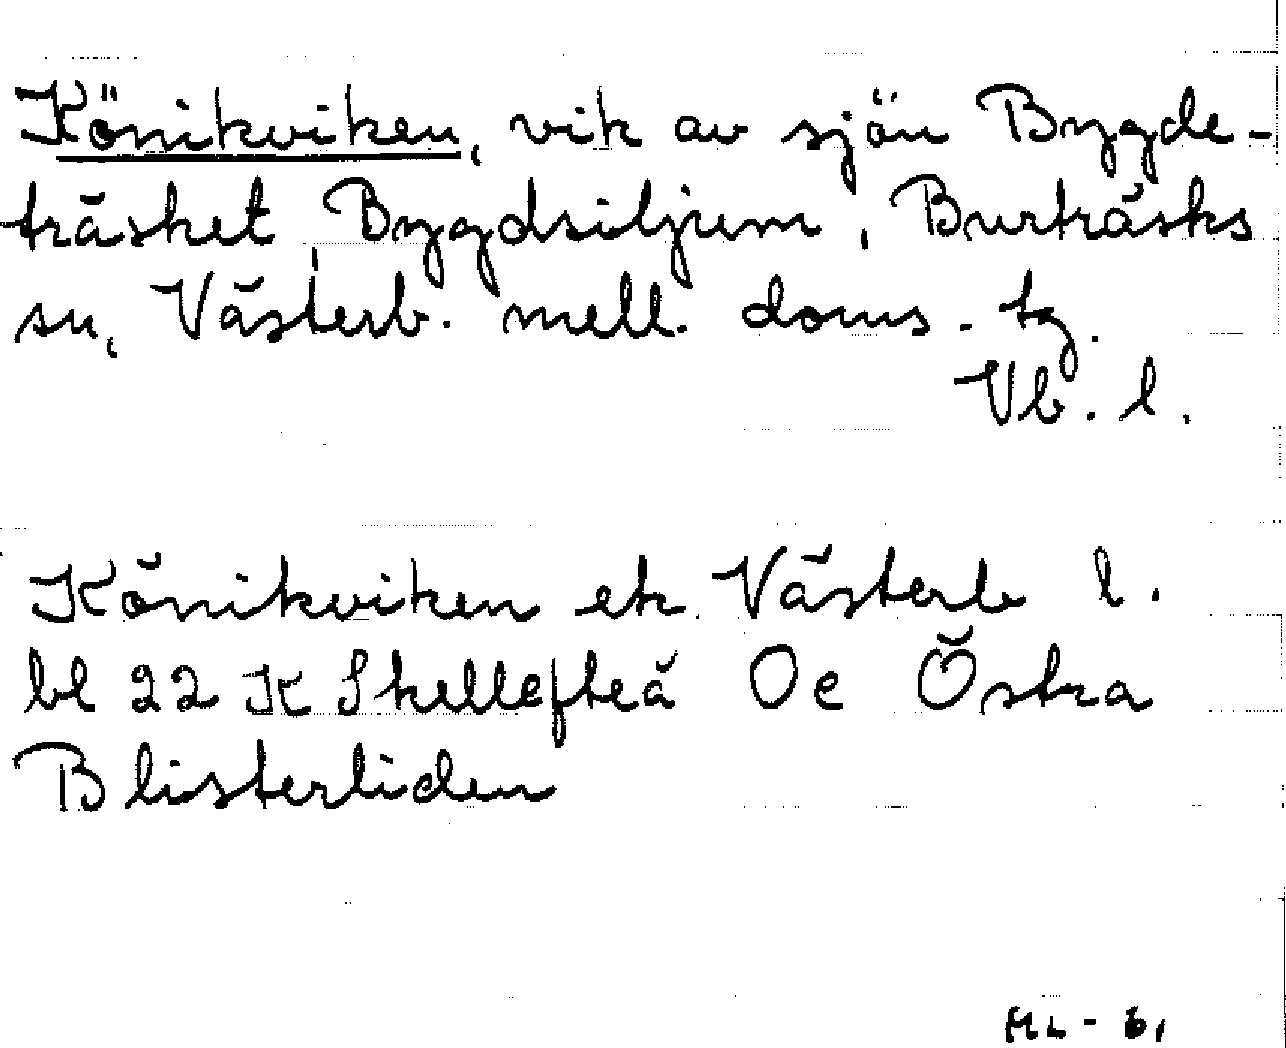 Könikviken, vik av sjön Bygde-
träsket, Bygdsiljum, Burträsks
sn, Västerb. mell. doms. tg.
Vb. l.
Könikviken ek. Västerb l.
bl 22 K Skellefteå Oe Östra
Blisterliden